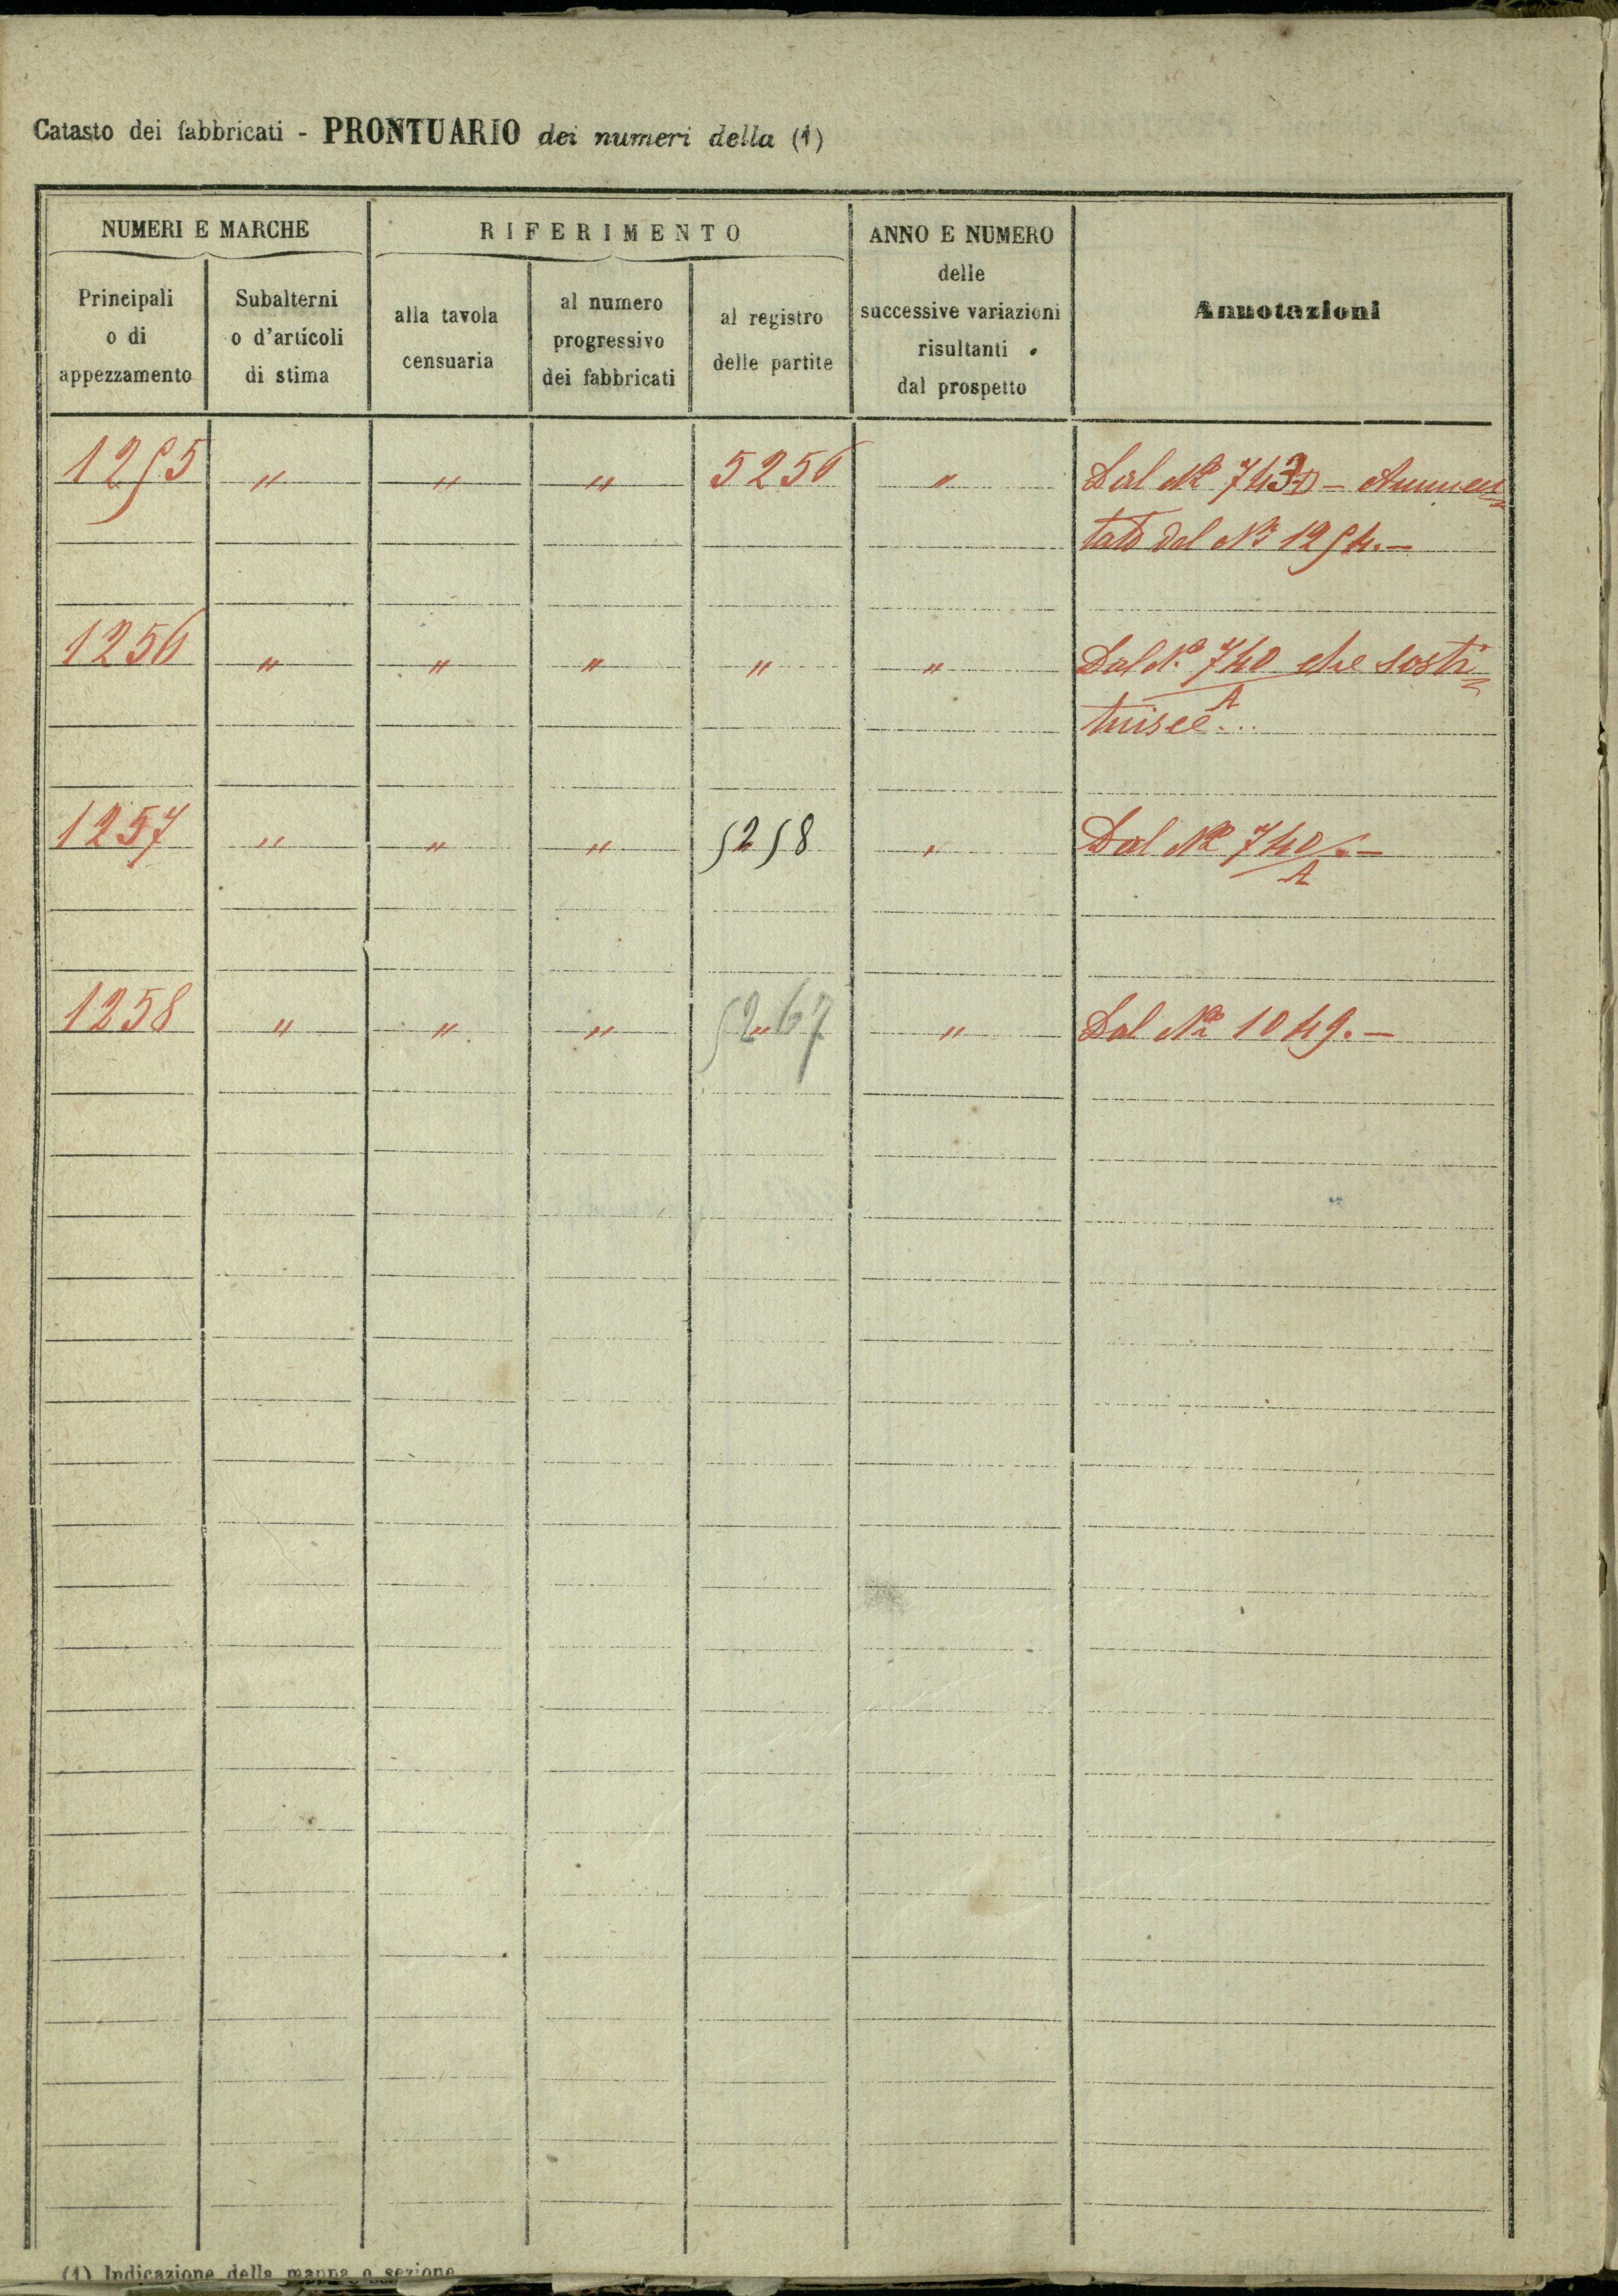 Catasto dei fabbricati - PRONTUARIO dei numeri della (1)
NUMERI E MARCHE
RIFERIMENTO
ANNO E NUMERO
delle
successive variazioni
risultanti
dal prospetto
Annotazioni
Principali
o di
appezzamento
Subalterni
o d'articoli
di stima
alla tavola
censuaria
al numero
progressivo
dei fabbricati
al registro
delle partite
1255 " " " 5256 " Dal No 743 D - Aumen=
tato dal No 1254.-
1256 " " " " " Dal No 740/A che sosti=
tuisce...
1257 " " " 5258 " Dal No 740/A.-
1258 " " " " 5267 " Dal No 1049.-
(1) Indicazione della mappa o sezione